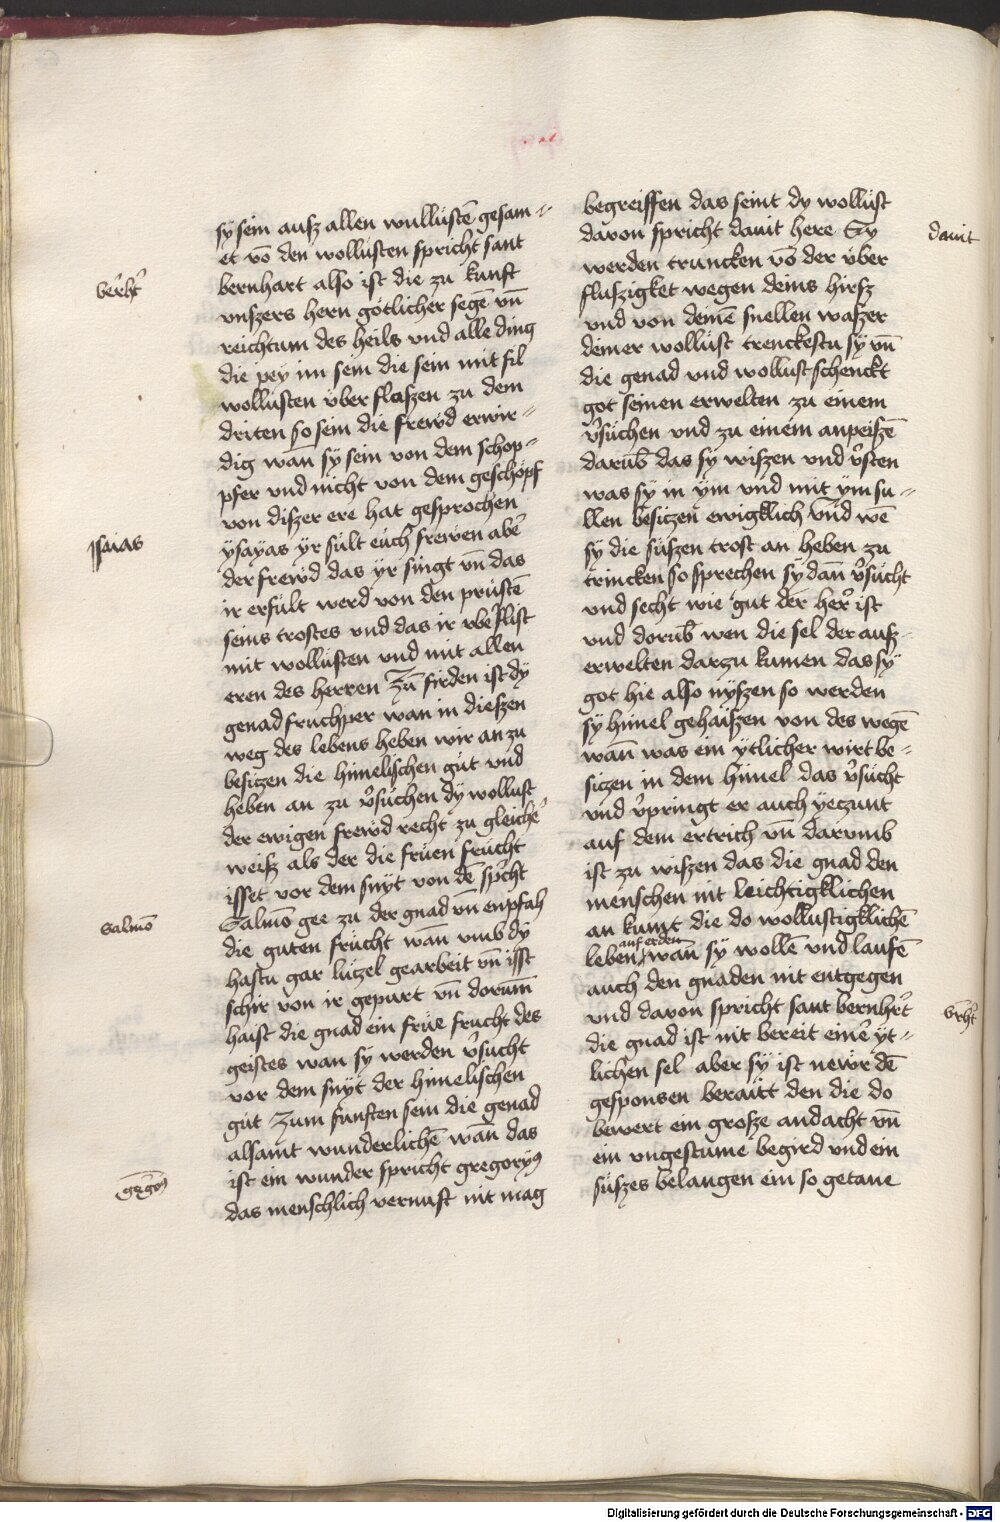 sÿ sein ausz allen wullustē gesam-
et vō den wollusten spricht sant
bernhart also ist die zu kunft
vnszers hern götlicher segē vn̄
reichtum des heils vnd alle ding
die peÿ im sein die sein mit fil
wollusten über flaszen zu dem
driten so sein die frewd erwir-
dig wan̄ sÿ sein von dem schop-
pfer vnd nicht von dem geschöpf
von diszer ere hat gesprochen
ÿsaÿas ÿr sült euch frewen aber
der frewd das ÿr singt vn̄ das
ir erfült werd von den prustē
seins trostes vnd das ir vbeflist
mit wollusten vnd mit allen
eren des herren Zū firden ist dÿ
genad fruchper wan in dieszen
weg des lebens heben wir an zu
besitzen die himelischen güt vnd
heben an zu v̾suchen dÿ wollust
der ewigen frewd recht zu gleichē
weisz als der die fruen frucht
isset vor dem snÿt von dē spricht
Salmō gee zu der gnad vn̄ enpfah
die guten frücht wan̄ vmb dÿ
hastu gar lützel gearbeit vn̄ isst
schir von ir gepurt vn̄ dorum̄
haist die gnad ein früe frucht des
geistes wan sÿ werden v̾sucht
vor dem snÿt der himelischen
güt Zum funften sein die genad
alsamt wunderlichē wan̄ das
ist ein wunder spricht gregoryꝰ
das menschlich vernuft nit mag
ber̄ht̾
Isaias
Salmō
gr̄goꝰ
begreiffen das seint dy wollust
davon spricht dauit here Sy
werden truncken vō der über
fluszigket wegen deins hirsz
vnd von deinē snellen waszer
deiner wollust trenckestu sÿ vn̄
die genad vnd wollust schenckt
got seinen erwelten zu einem
v̾suchen vnd zu einem anpeiszē
darūb das sÿ wiszen vnd v̾sten
was sÿ in ÿm vnd mit ÿm su-
llen besitzen ewigklich vnd wē
sÿ die süszen trost an heben zu
trincken so sprechen sy dan̄ v̾sücht
vnd secht wie gut der her̾ ist
vnd dorūb wen die sel der ausz-
erwelten darzu kumen das sÿ
got hie also nÿszen so werden
sÿ himel gehaiszen von des wegē
wan̄ was ein ÿtlicher wirt be-
sitzen in dem himel das v̾sücht
vnd v̾pringt er auch ÿeczunt
auf dem ertrich vn̄ darumb
ist zu wiszen das die gnad den
menschen nit leichtigklichen
an kumt die do wollustigklichē
auf erden
leben wan̄ sÿ wollē vnd laufē
auch den gnaden nit entgegen
vnd davon spricht sant bernhrt̾
die gnad ist nit bereit einē ÿt-
lichen sel aber sÿ ist newr dē
gesponsen beraitt den die do
bewert ein grosze andacht vn̄
ein vngestume begird vnd ein
süszes belangen ein so getane
dauit
br̄ht̾
Digitalisierung gefördert durch die Deutsche Forschungsgemeinschaft - DFG